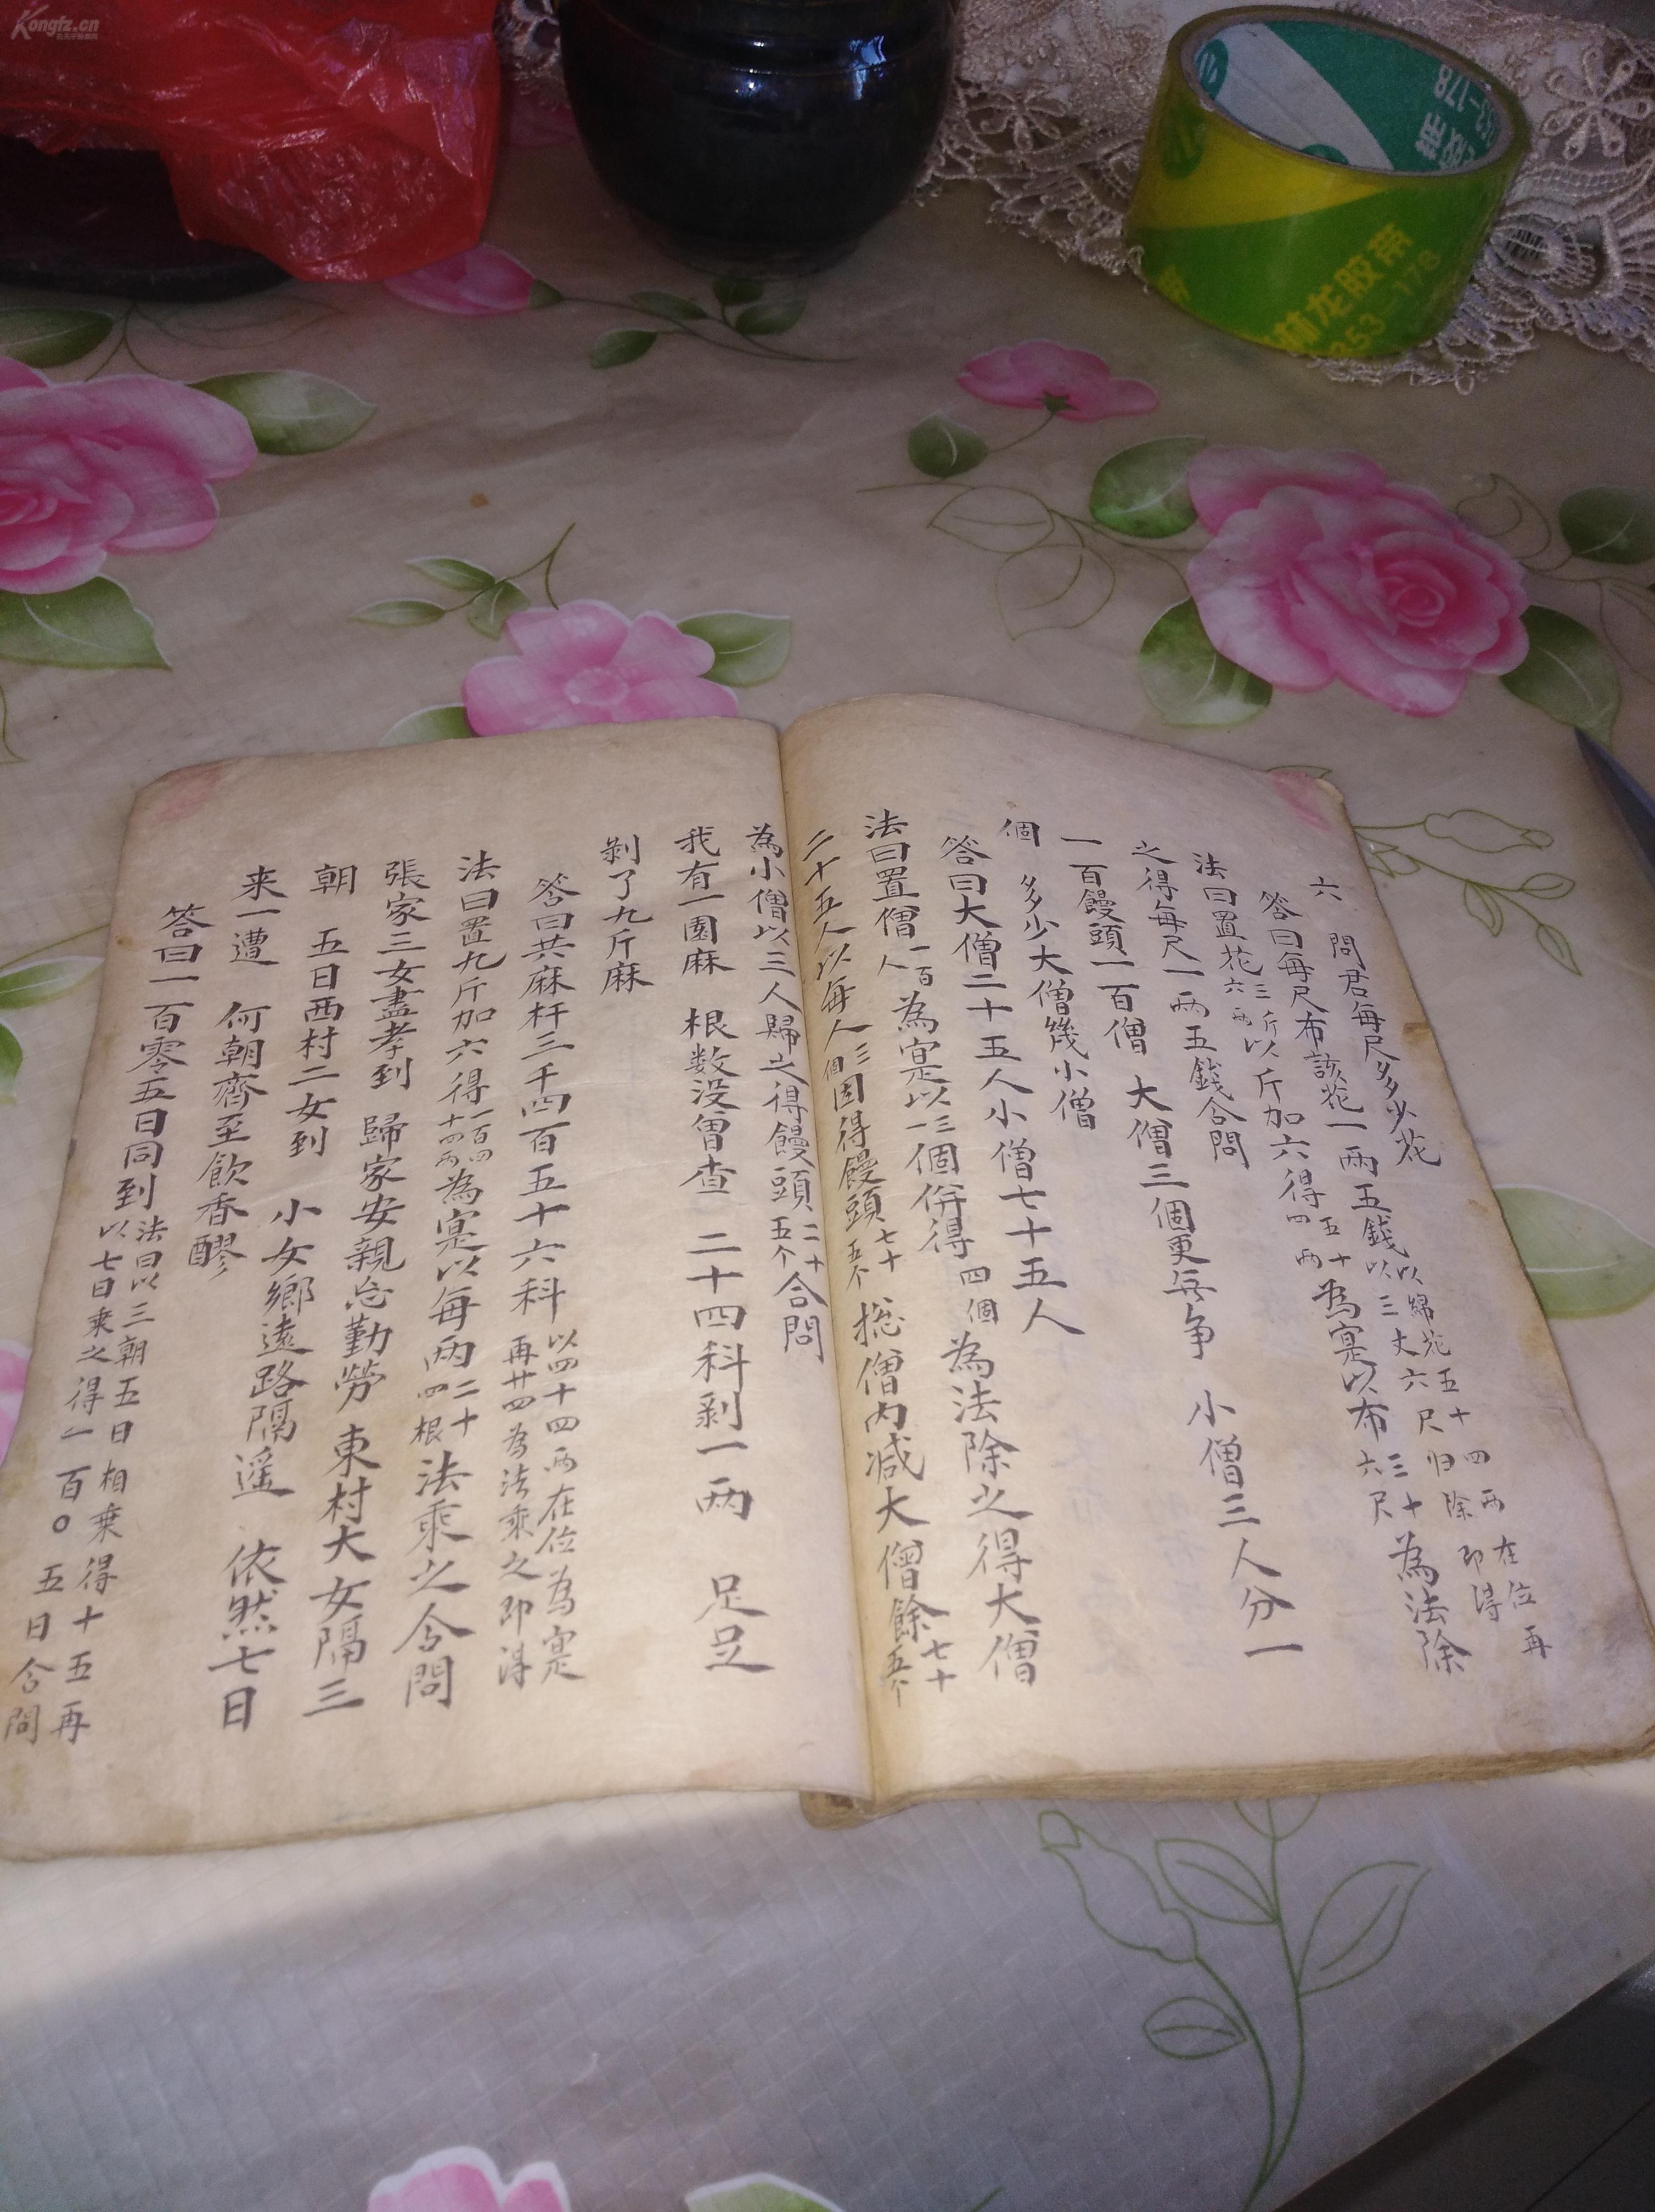 Kongfz.cn
六　問君每尺多少花
答曰每尺布該花一兩五錢以綿花五十四兩在位再以三丈六尺归除即得
法曰置花三斤六兩以斤加六得五十四兩為寔以布三十六尺為法除
之得每尺一兩五錢合問
一百饅頭一百僧　大僧三個更無争　小僧三人分一
個　多少大僧幾小僧
答曰大僧二十五人小僧七十五人
法曰置僧一百人為寔以三一個併得四個為法除之得大僧
二十五人以每人三個因得饅頭七十五个㧾僧内减大僧餘七十五个
為小僧以三人歸之得饅頭二十五个合問
我有一園麻　根数没曾查　二十四科剥一两　足足
剥了九斤麻
答曰共麻杆三千四百五十六科以四十四两在位為寔再廿四為法乘之即得
法曰置九斤加六得一百四十四两為寔以每两二十四根法乘之合問
張家三女盡孝到　歸家安親忘勤勞　東村大女隔三
朝　五日西村二女到　小女鄉遠路隔遥　依然七日
来一遭　何朝齊至飲香醪
答曰一百零五日同到法曰以三朝五日相乗得十五再以七日乘之得一百〇五日合問
林龙胶带
353-178